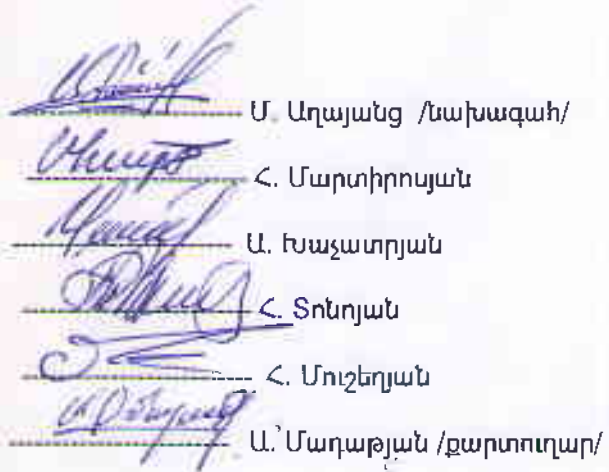 Մ. Աղայանց /նախագահ/
Հ. Մարտիրոսյան
Ա. Խաչատրյան
Հ. Տոնոյան
Հ. Մուշեղյան
Ա. Մադաթյան /քարտուղար/